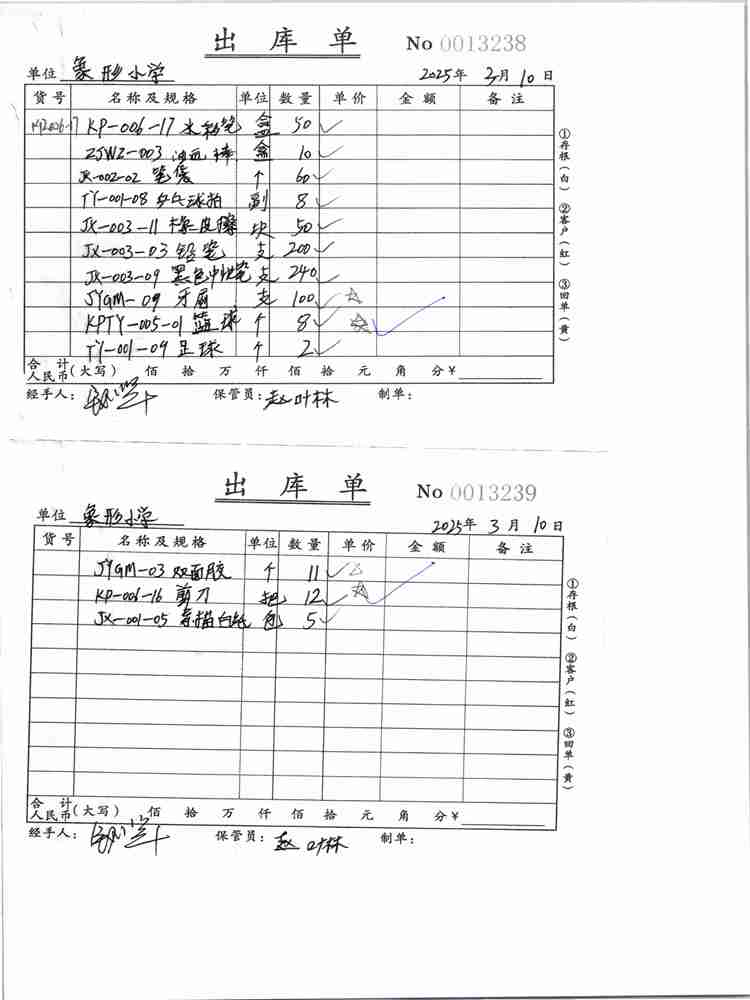 出 库 单 No 0013238
单位 象形小学 2025年 3月 10日
货号 名称及规格 单位 数量 单价 金额 备注
KP-006-17 水粉笔 盒 50 ✓
ZJWZ-003 油画棒 盒 10 ✓
JX-002-02 笔袋 个 60 ✓
TY-001-08 乒乓球拍 副 8 ✓
JX-003-11 橡皮擦 块 50 ✓
JX-003-03 铅笔 支 200 ✓
JX-003-09 黑色中性笔 支 240 ✓
JYGM-09 牙刷 支 100 ✓ ☆
KPTY-005-01 篮球 个 8 ✓ ☆ ✓
TY-001-09 足球 个 2 ✓
合计人民币(大写) 佰 拾 万 仟 佰 拾 元 角 分¥
经手人: 保管员:赵叶林 制单:
①存根(白) ②客户(红) ③回单(黄)
出 库 单 No 0013239
单位 象形小学 2025年 3月 10日
货号 名称及规格 单位 数量 单价 金额 备注
JYGM-03 双面胶 个 11 ✓ △
KP-006-16 剪刀 把 12 ✓ ☆ ✓
JX-001-05 素描白纸 包 5 ✓
合计人民币(大写) 佰 拾 万 仟 佰 拾 元 角 分¥
经手人: 保管员:赵叶林 制单:
①存根(白) ②客户(红) ③回单(黄)